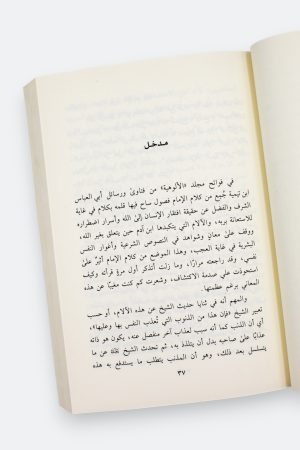 مدخل
في فواتح مجلد «الألوهية» من فتاوى ورسائل أبي العباس
ابن تيمية جُمع من كلام الإمام فصول ساح فيها قلمه بكلام في غاية
الشرف والفضل عن حقيقة افتقار الإنسان إلى الله وأسرار اضطراره
للاستعانة بربه، والآلام التي يتكبدها ابن آدم حين يتعلق بغير الله،
ووقف على معانٍ وشواهد في النصوص الشرعية وأغوار النفس
البشرية في غاية العجب، وهذا الموضع من كلام الإمام أثيرٌ على
نفسي، وقد راجعته مرارًا، وما زلت أتذكر أول مرة قرأته وكيف
استحوذت علي صدمة الاكتشاف، وشعرت كم كنت مغيبًا عن هذه
المعاني برغم عظمتها.
والمهم أنه في ثنايا حديث الشيخ عن هذه الآلام، أو حسب
تعبير الشيخ «فإن هذا من الذنوب التي تُعذب النفس بها وعليها»،
أي أن الذنب كما أنه سبب لعذاب آخر منفصل عنه، يكون هو ذاته
عذابًا على صاحبه بدل أن يتلذذ به، ثم تحدث الشيخ عن ما
يتسلسل بعد ذلك، وهو أن المذنب يتطلب ما يستدفع به هذه
٣٧